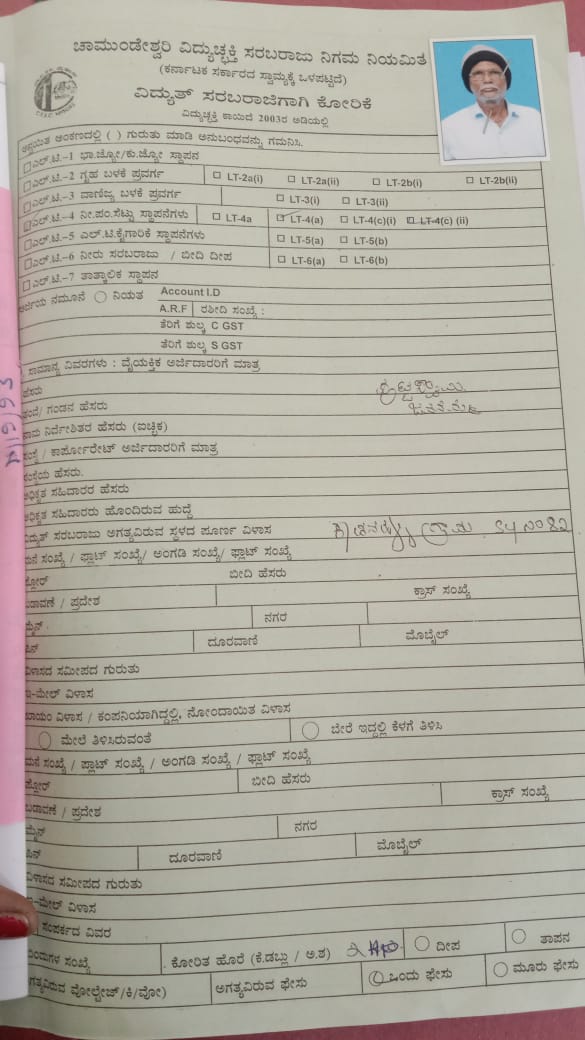 ಚಾಮುಂಡೇಶ್ವರಿ ವಿದ್ಯುಚ್ಛಕ್ತಿ ಸರಬರಾಜು ನಿಗಮ ನಿಯಮಿತ
(ಕರ್ನಾಟಕ ಸರ್ಕಾರದ ಸ್ವಾಮ್ಯಕ್ಕೆ ಒಳಪಟ್ಟಿದೆ)
ವಿದ್ಯುತ್ ಸರಬರಾಜಿಗಾಗಿ ಕೋರಿಕೆ
ವಿದ್ಯುಚ್ಛಕ್ತಿ ಕಾಯಿದೆ 2003ರ ಅಡಿಯಲ್ಲಿ
ಅಂಕಣದಲ್ಲಿ ( ) ಗುರುತು ಮಾಡಿ ಅನುಬಂಧವನ್ನು ಗಮನಿಸಿ.
ಎಲ್.ಟಿ.-1 ಭಾ.ಜ್ಯೋ/ಕು.ಜ್ಯೋ ಸ್ಥಾಪನ
ಎಲ್.ಟಿ.-2 ಗೃಹ ಬಳಕೆ ಪ್ರವರ್ಗ LT-2a(i) LT-2a(ii) LT-2b(i) LT-2b(ii)
ಎಲ್.ಟಿ.-3 ವಾಣಿಜ್ಯ ಬಳಕೆ ಪ್ರವರ್ಗ LT-3(i) LT-3(ii)
ಎಲ್.ಟಿ.-4 ನೀ.ಪಂ.ಸೆಟ್ಟು ಸ್ಥಾಪನೆಗಳು LT-4a LT-4(a) LT-4(c)(i) LT-4(c) (ii)
ಎಲ್.ಟಿ.-5 ಎಲ್.ಟಿ.ಕೈಗಾರಿಕೆ ಸ್ಥಾಪನೆಗಳು LT-5(a) LT-5(b)
ಎಲ್.ಟಿ.-6 ನೀರು ಸರಬರಾಜು / ಬೀದಿ ದೀಪ LT-6(a) LT-6(b)
ಎಲ್.ಟಿ.-7 ತಾತ್ಕಾಲಿಕ ಸ್ಥಾಪನ
ಅರ್ಜಿಯ ನಮೂನೆ ನಿಯತ Account I.D
A.R.F ರಶೀದಿ ಸಂಖ್ಯೆ :
ತೆರಿಗೆ ಶುಲ್ಕ C GST
ತೆರಿಗೆ ಶುಲ್ಕ S GST
ಸಾಮಾನ್ಯ ವಿವರಗಳು : ವೈಯಕ್ತಿಕ ಅರ್ಜಿದಾರರಿಗೆ ಮಾತ್ರ
ಹೆಸರು
ತಂದೆ/ ಗಂಡನ ಹೆಸರು
ನಾಮ ನಿರ್ದೇಶಿತರ ಹೆಸರು (ಐಚ್ಛಿಕ)
ಸಂಸ್ಥೆ / ಕಾರ್ಪೋರೇಟ್ ಅರ್ಜಿದಾರರಿಗೆ ಮಾತ್ರ
ಸಂಸ್ಥೆಯ ಹೆಸರು.
ಅಧಿಕೃತ ಸಹಿದಾರರ ಹೆಸರು
ಅಧಿಕೃತ ಸಹಿದಾರರು ಹೊಂದಿರುವ ಹುದ್ದೆ
ವಿದ್ಯುತ್ ಸರಬರಾಜು ಅಗತ್ಯವಿರುವ ಸ್ಥಳದ ಪೂರ್ಣ ವಿಳಾಸ
ಮನೆ ಸಂಖ್ಯೆ / ಫ್ಲಾಟ್ ಸಂಖ್ಯೆ/ ಅಂಗಡಿ ಸಂಖ್ಯೆ/ ಫ್ಲಾಟ್ ಸಂಖ್ಯೆ
ಫ್ಲೋರ್ ಬೀದಿ ಹೆಸರು
ಬಡಾವಣೆ / ಪ್ರದೇಶ ಕ್ರಾಸ್ ಸಂಖ್ಯೆ
ಮೈನ್ ನಗರ
ಪಿನ್ ದೂರವಾಣಿ ಮೊಬೈಲ್
ವಿಳಾಸದ ಸಮೀಪದ ಗುರುತು
ಇ-ಮೇಲ್ ವಿಳಾಸ
ಖಾಯಂ ವಿಳಾಸ / ಕಂಪನಿಯಾಗಿದ್ದಲ್ಲಿ, ನೋಂದಾಯಿತ ವಿಳಾಸ
ಮೇಲೆ ತಿಳಿಸಿರುವಂತೆ ಬೇರೆ ಇದ್ದಲ್ಲಿ ಕೆಳಗೆ ತಿಳಿಸಿ
ಮನೆ ಸಂಖ್ಯೆ / ಪ್ಲಾಟ್ ಸಂಖ್ಯೆ / ಅಂಗಡಿ ಸಂಖ್ಯೆ / ಫ್ಲಾಟ್ ಸಂಖ್ಯೆ
ಫ್ಲೋರ್ ಬೀದಿ ಹೆಸರು
ಬಡಾವಣೆ / ಪ್ರದೇಶ ಕ್ರಾಸ್ ಸಂಖ್ಯೆ
ಮೈನ್ ನಗರ
ಪಿನ್ ದೂರವಾಣಿ ಮೊಬೈಲ್
ವಿಳಾಸದ ಸಮೀಪದ ಗುರುತು
ಇ-ಮೇಲ್ ವಿಳಾಸ
ಸಂಪರ್ಕದ ವಿವರ
ಬಿಂದುಗಳ ಸಂಖ್ಯೆ ಕೋರಿತ ಹೊರೆ (ಕೆ.ಡಬ್ಲು / ಅ.ಶ) ದೀಪ ತಾಪನ
ಅಗತ್ಯವಿರುವ ವೋಲ್ಟೇಜ್/ಕಿ/ವೋ) ಅಗತ್ಯವಿರುವ ಫೇಸು ಒಂದು ಫೇಸು ಮೂರು ಫೇಸು